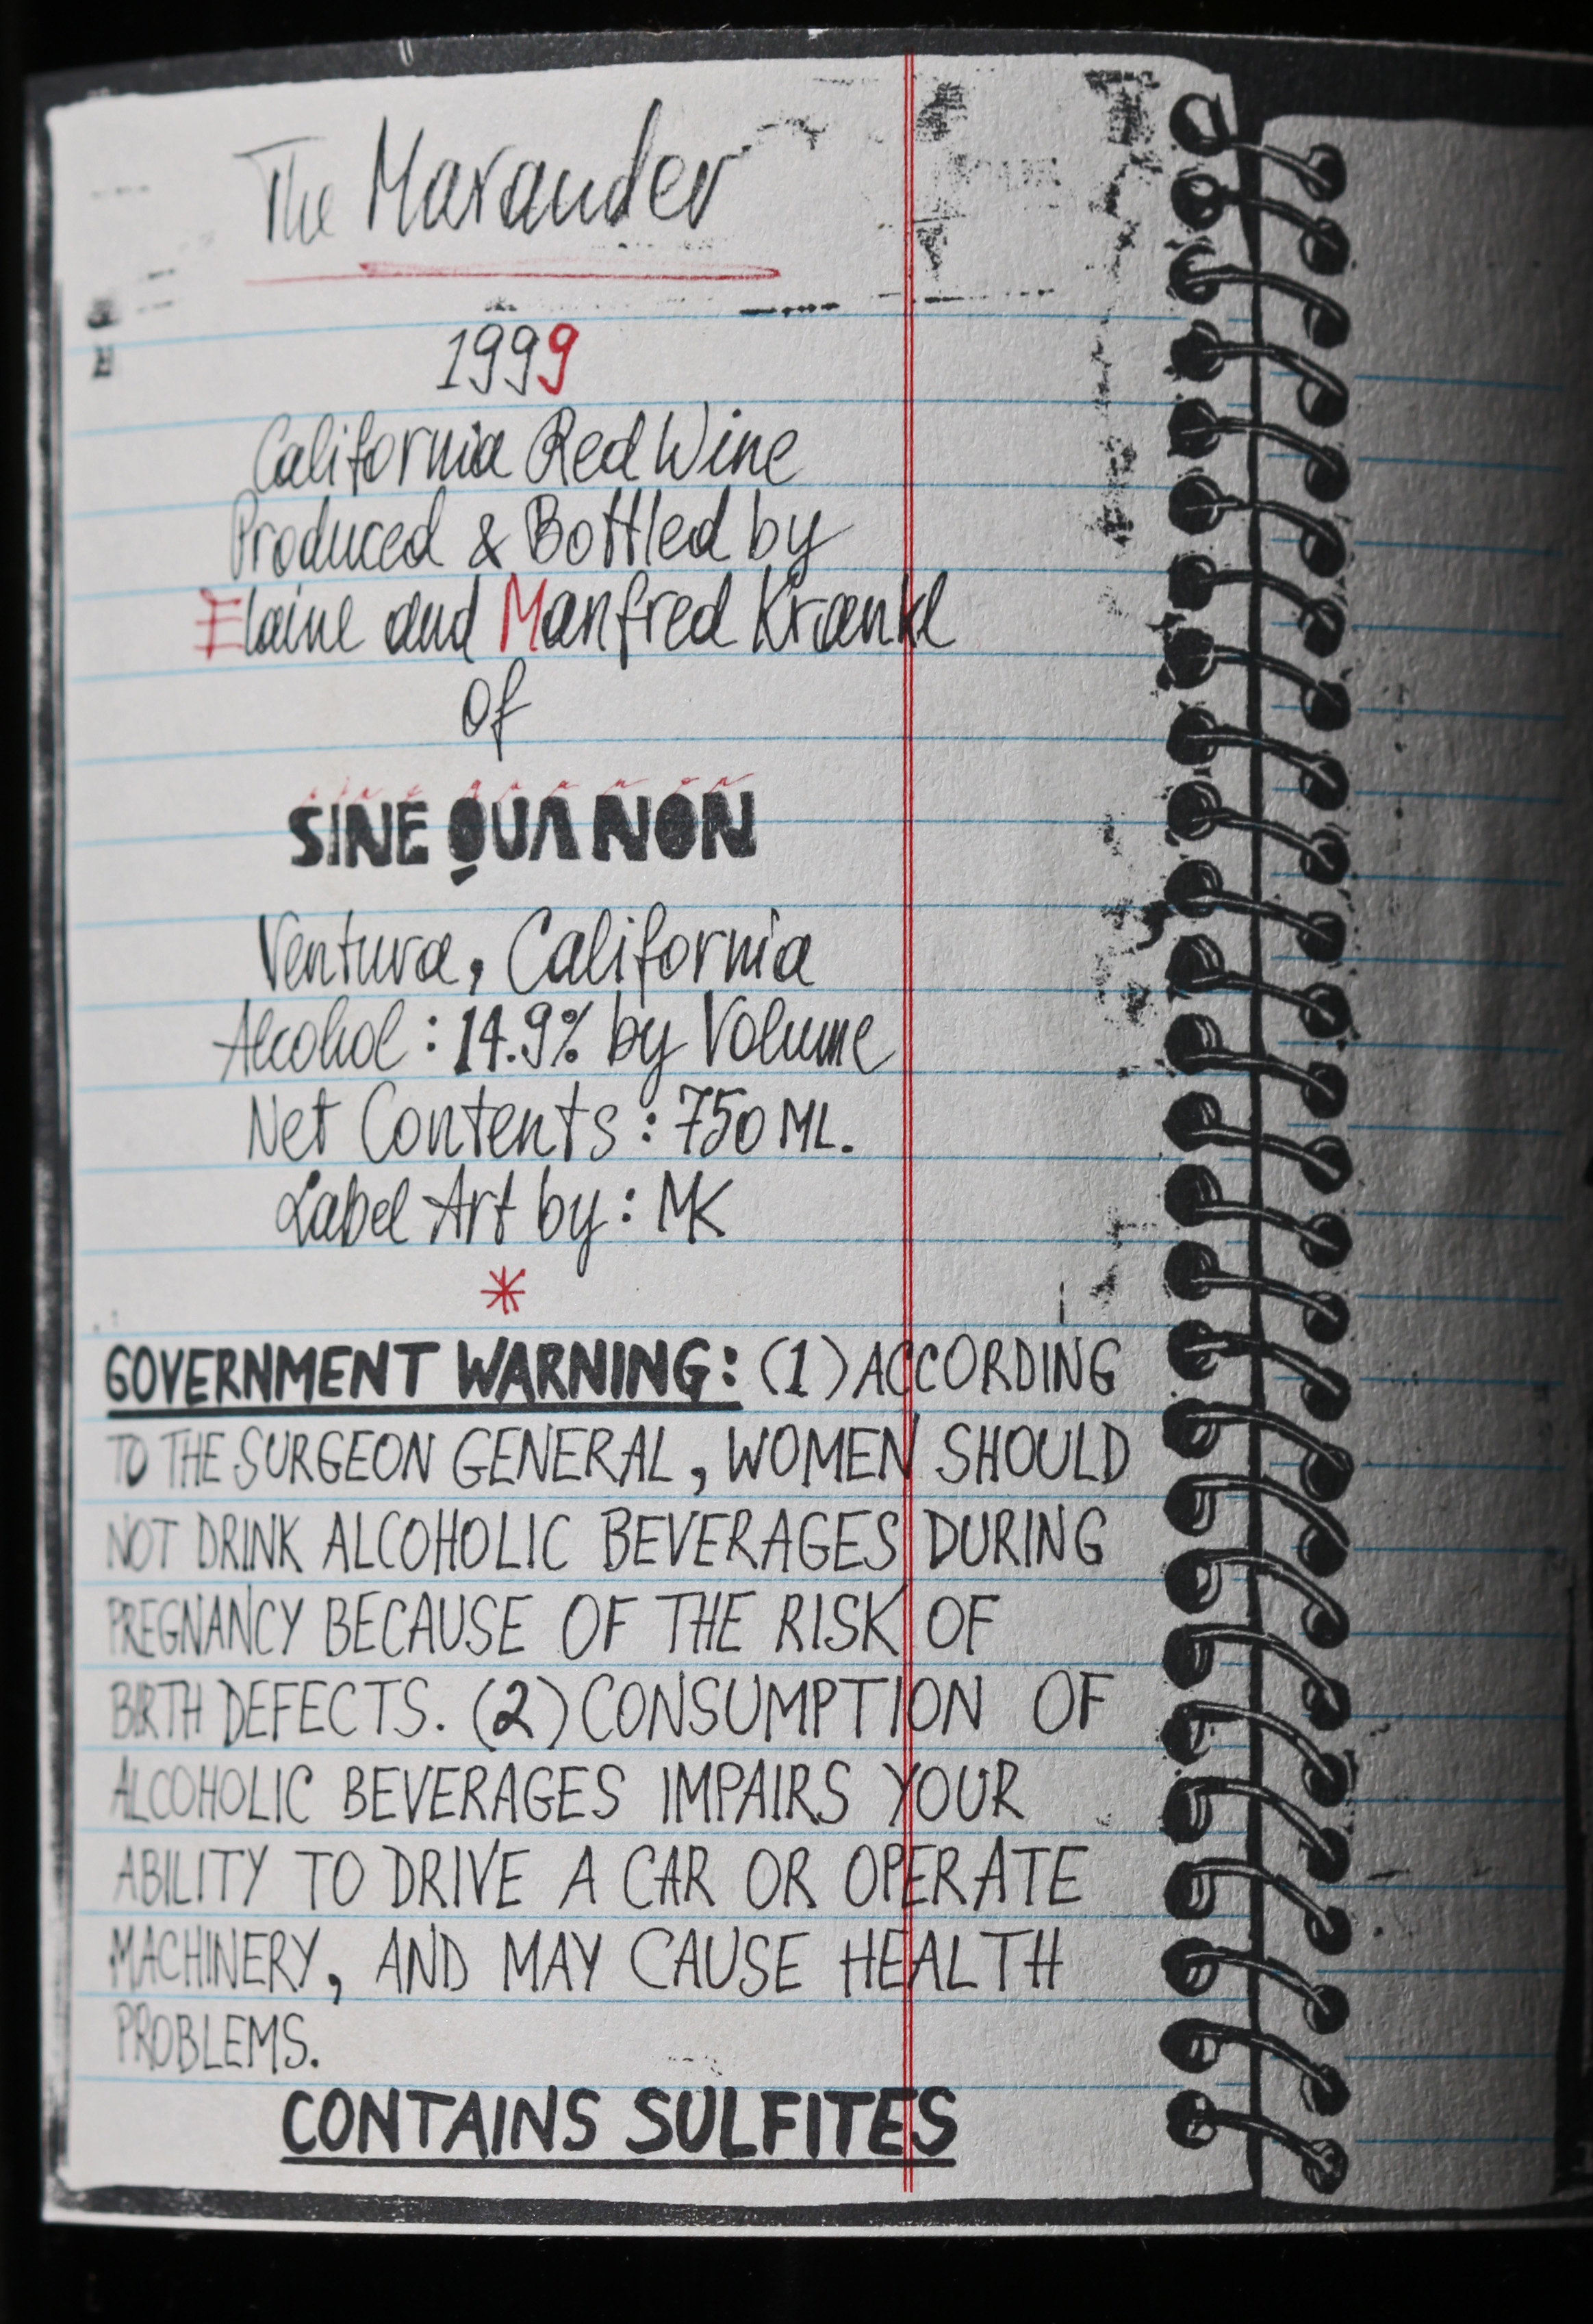 The Marauder
1999
California Red Wine
Produced & Bottled by
Elaine and Manfred Krankl
of
SINE QUA NON
Ventura, California
Alcohol: 14.9% by Volume
Net Contents: 750 ML.
Label Art by: MK
*
GOVERNMENT WARNING: (1) ACCORDING
TO THE SURGEON GENERAL, WOMEN SHOULD
NOT DRINK ALCOHOLIC BEVERAGES DURING
PREGNANCY BECAUSE OF THE RISK OF
BIRTH DEFECTS. (2) CONSUMPTION OF
ALCOHOLIC BEVERAGES IMPAIRS YOUR
ABILITY TO DRIVE A CAR OR OPERATE
MACHINERY, AND MAY CAUSE HEALTH
PROBLEMS.
CONTAINS SULFITES